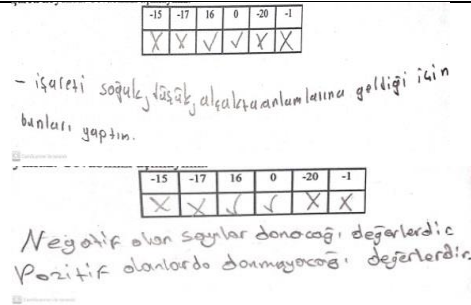 -15 -17 16 0 -20 -1
X X ✓ ✓ X X
- işareti soğuk, düşük, alçakta anlamlarına geldiği için
bunları yaptım.
-15 -17 16 0 -20 -1
X X ✓ ✓ X X
Negatif olan sayılar donacağı değerlerdir
Pozitif olanlarda donmayacağı değerlerdir.